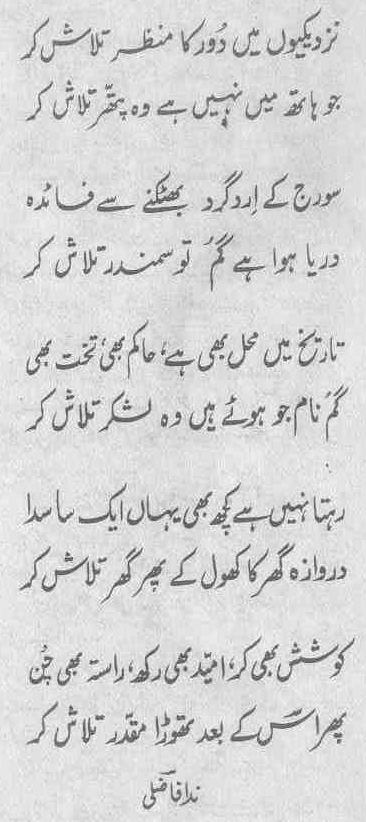 نزدیکیوں میں دُور کا منظر تلاش کر
جو ہاتھ میں نہیں ہے وہ پتھّر تلاش کر
سورج کے اِرد گرد بھٹکنے سے فائدہ
دریا ہوا ہے گُم تو سمندر تلاش کر
تاریخ میں محل بھی ہے، حاکم بھی، تخت بھی
گُم نام جو ہوئے ہیں وہ لشکر تلاش کر
رہتا نہیں ہے کچھ بھی یہاں ایک سا سدا
دروازہ گھر کا کھول کے پھر گھر تلاش کر
کوشش بھی کر، امیّد بھی رکھ، راستہ بھی چُن
پھر اس کے بعد تھوڑا مقدّر تلاش کر
ندا فاضلی